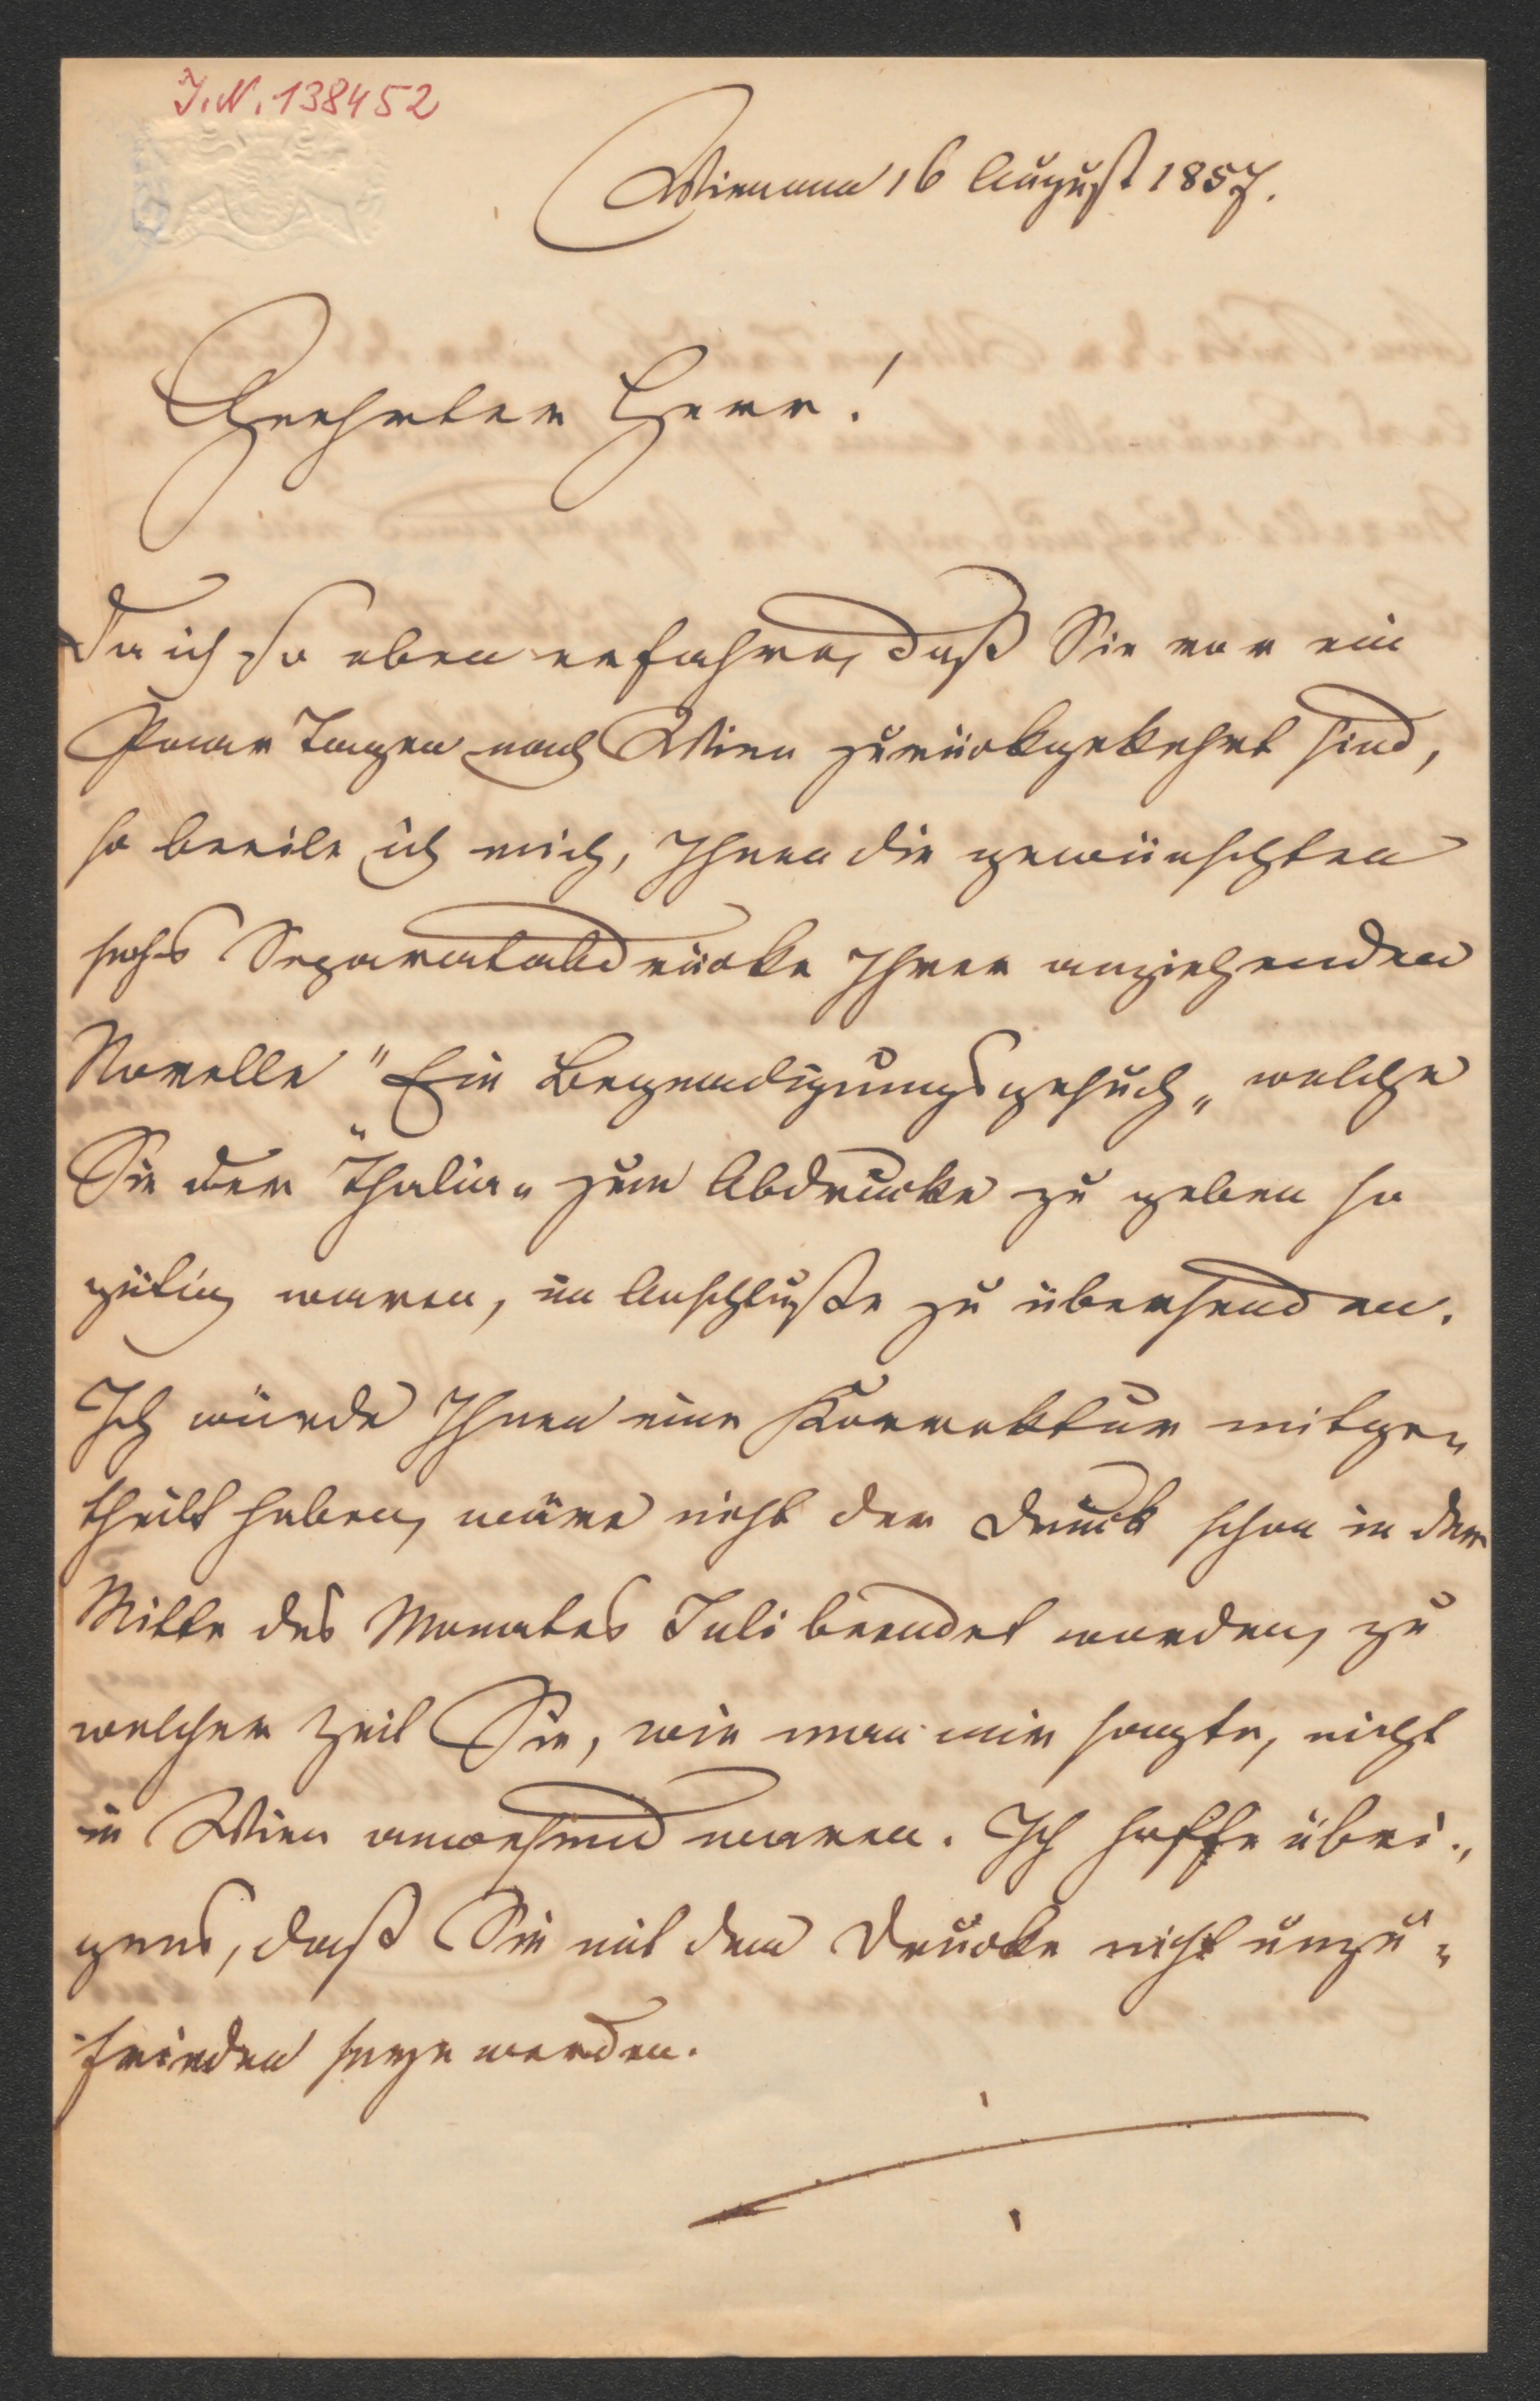 I.N. 138452
Wien am 16 August 1857.
Geehrter Herr!
Da ich so eben erfahre, daß Sie vor ein
Paar Tagen nach Wien zurückgekehrt sind,
so beeile ich mich, Ihnen die gewünschten
sechs Separatabdrücke Ihrer anziehenden
Novelle "Ein Begnadigungsgesuch„ welche
Sie der "Thalia„ zum Abdrucke zu geben so
gütig waren, im Anschluße zu übersenden.
Ich würde Ihnen eine Korrektur mitge„
theilt haben, wäre nicht der Druck schon in der
Mitte des Monates Juli beendet worden, zu
welcher Zeit Sie, wie man mir sagte, nicht
in Wien anwesend waren. Ich hoffe übri„
gens, daß Sie mit dem Drucke nicht unzu„
frieden seyn werden.